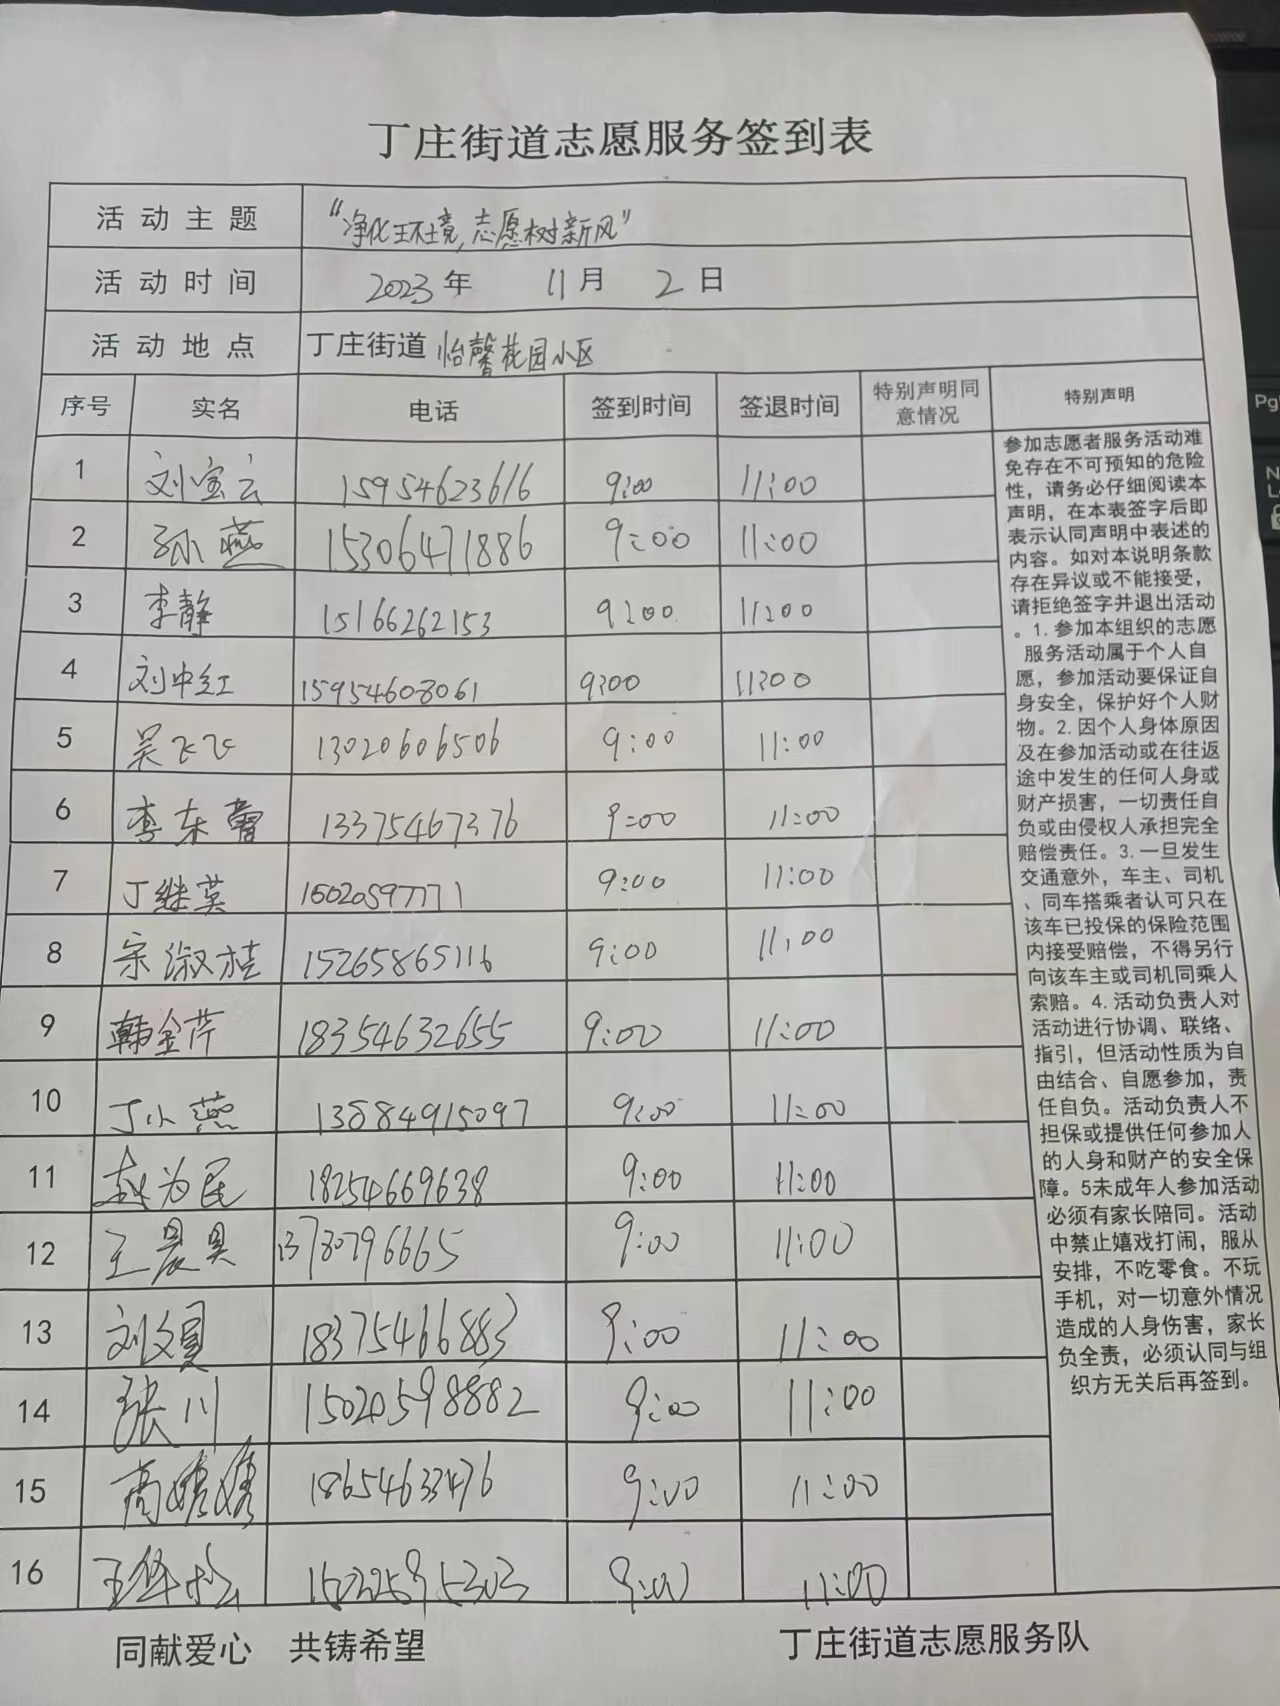 丁庄街道志愿服务签到表
活动主题 “净化环境,志愿树新风”
活动时间 2023年 11月 2日
活动地点 丁庄街道 怡馨花园小区
序号 实名 电话 签到时间 签退时间 特别声明同意情况 特别声明
1 刘宝云 15954623616 9:00 11:00
2 孙燕 15306471886 9:00 11:00
3 李静 15166262153 9:00 11:00
4 刘中红 15954608061 9:00 11:00
5 吴飞飞 13020606506 9:00 11:00
6 李东蕾 13375467376 9:00 11:00
7 丁继英 15020597771 9:00 11:00
8 宗淑桂 15265865116 9:00 11:00
9 韩金芹 18354632655 9:00 11:00
10 丁小燕 13884915097 9:00 11:00
11 赵为民 18254669638 9:00 11:00
12 王晨昊 13780796665 9:00 11:00
13 刘文员 18375466883 9:00 11:00
14 张川 15020598882 9:00 11:00
15 高嫦嫦 18654633476 9:00 11:00
16 9:00 11:00
参加志愿者服务活动难
免存在不可预知的危险
性,请务必仔细阅读本
声明,在本表签字后即
表示认同声明中表述的
内容。如对本说明条款
存在异议或不能接受,
请拒绝签字并退出活动
。1.参加本组织的志愿
服务活动属于个人自
愿,参加活动要保证自
身安全,保护好个人财
物。2.因个人身体原因
及在参加活动或在往返
途中发生的任何人身或
财产损害,一切责任自
负或由侵权人承担完全
赔偿责任。3.一旦发生
交通意外,车主、司机
、同车搭乘者认可只在
该车已投保的保险范围
内接受赔偿,不得另行
向该车主或司机同乘人
索赔。4.活动负责人对
活动进行协调、联络、
指引,但活动性质为自
由结合、自愿参加,责
任自负。活动负责人不
担保或提供任何参加人
的人身和财产的安全保
障。5未成年人参加活动
必须有家长陪同。活动
中禁止嬉戏打闹,服从
安排,不吃零食。不玩
手机,对一切意外情况
造成的人身伤害,家长
负全责,必须认同与组
织方无关后再签到。
同献爱心 共铸希望 丁庄街道志愿服务队